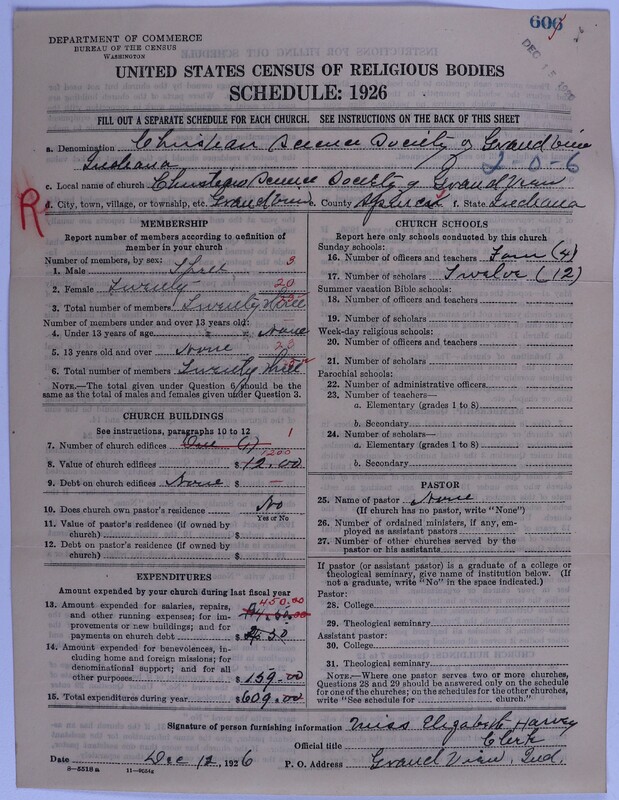 606
DEC 15 1926
DEPARTMENT OF COMMERCE
BUREAU OF THE CENSUS
WASHINGTON
UNITED STATES CENSUS OF RELIGIOUS BODIES
SCHEDULE: 1926
FILL OUT A SEPARATE SCHEDULE FOR EACH CHURCH. SEE INSTRUCTIONS ON THE BACK OF THIS SHEET
a. Denomination Christian Science Society of Grand View
Indiana 2-0-6
c. Local name of church Christian Science Society of Grand View
R
d. City, town, village, or township, etc. Grandview e. County Spencer f. State Indiana
MEMBERSHIP
Report number of members according to definition of
member in your church
Number of members, by sex:
1. Male Three 3
2. Female Twenty 20
3. Total number of members Twenty three
Number of members under and over 13 years old:
4. Under 13 years of age None
5. 13 years old and over None 23
6. Total number of members Twenty three
NOTE.—The total given under Question 6 should be
same as the total of males and females given under Question 3.
CHURCH BUILDINGS
See instructions, paragraphs 10 to 12
7. Number of church edifices One (1) 1
8. Value of church edifices $ 12.00 1200
9. Debt on church edifices None $ —
10. Does church own pastor's residence No
Yes or No
11. Value of pastor's residence (if owned by
church) $
12. Debt on pastor's residence (if owned by
church) $
EXPENDITURES
Amount expended by your church during last fiscal year
13. Amount expended for salaries, repairs,
and other running expenses; for im-
provements or new buildings; and for
payments on church debt $ 450.00
14. Amount expended for benevolences,
including home and foreign missions; for
denominational support; and for all
other purposes $ 159.00
15. Total expenditures during year $ 609.00
CHURCH SCHOOLS
Report here only schools conducted by this church
Sunday schools:
16. Number of officers and teachers Four (4)
17. Number of scholars Twelve (12)
Summer vacation Bible schools:
18. Number of officers and teachers
19. Number of scholars
Week-day religious schools:
20. Number of officers and teachers
21. Number of scholars
Parochial schools:
22. Number of administrative officers
23. Number of teachers—
a. Elementary (grades 1 to 8)
b. Secondary
24. Number of scholars—
a. Elementary (grades 1 to 8)
b. Secondary
PASTOR
25. Name of pastor None
(If church has no pastor, write "None")
26. Number of ordained ministers, if any, em-
ployed as assistant pastors
27. Number of other churches served by the
pastor or his assistants
If pastor (or assistant pastor) is a graduate of a college or
theological seminary, give name of institution below. (If
not a graduate, write "No" in the space indicated.)
Pastor:
28. College
29. Theological seminary
Assistant pastor:
30. College
31. Theological seminary
NOTE.—Where one pastor serves two or more churches,
Questions 28 and 29 should be answered only on the schedule
for one of the churches; on the schedules for the other churches,
write "See schedule for church."
Signature of person furnishing information Miss Elizabeth Harvey
Official title Clerk
Date Dec 12, 1926 P. O. Address Grand View, Ind.